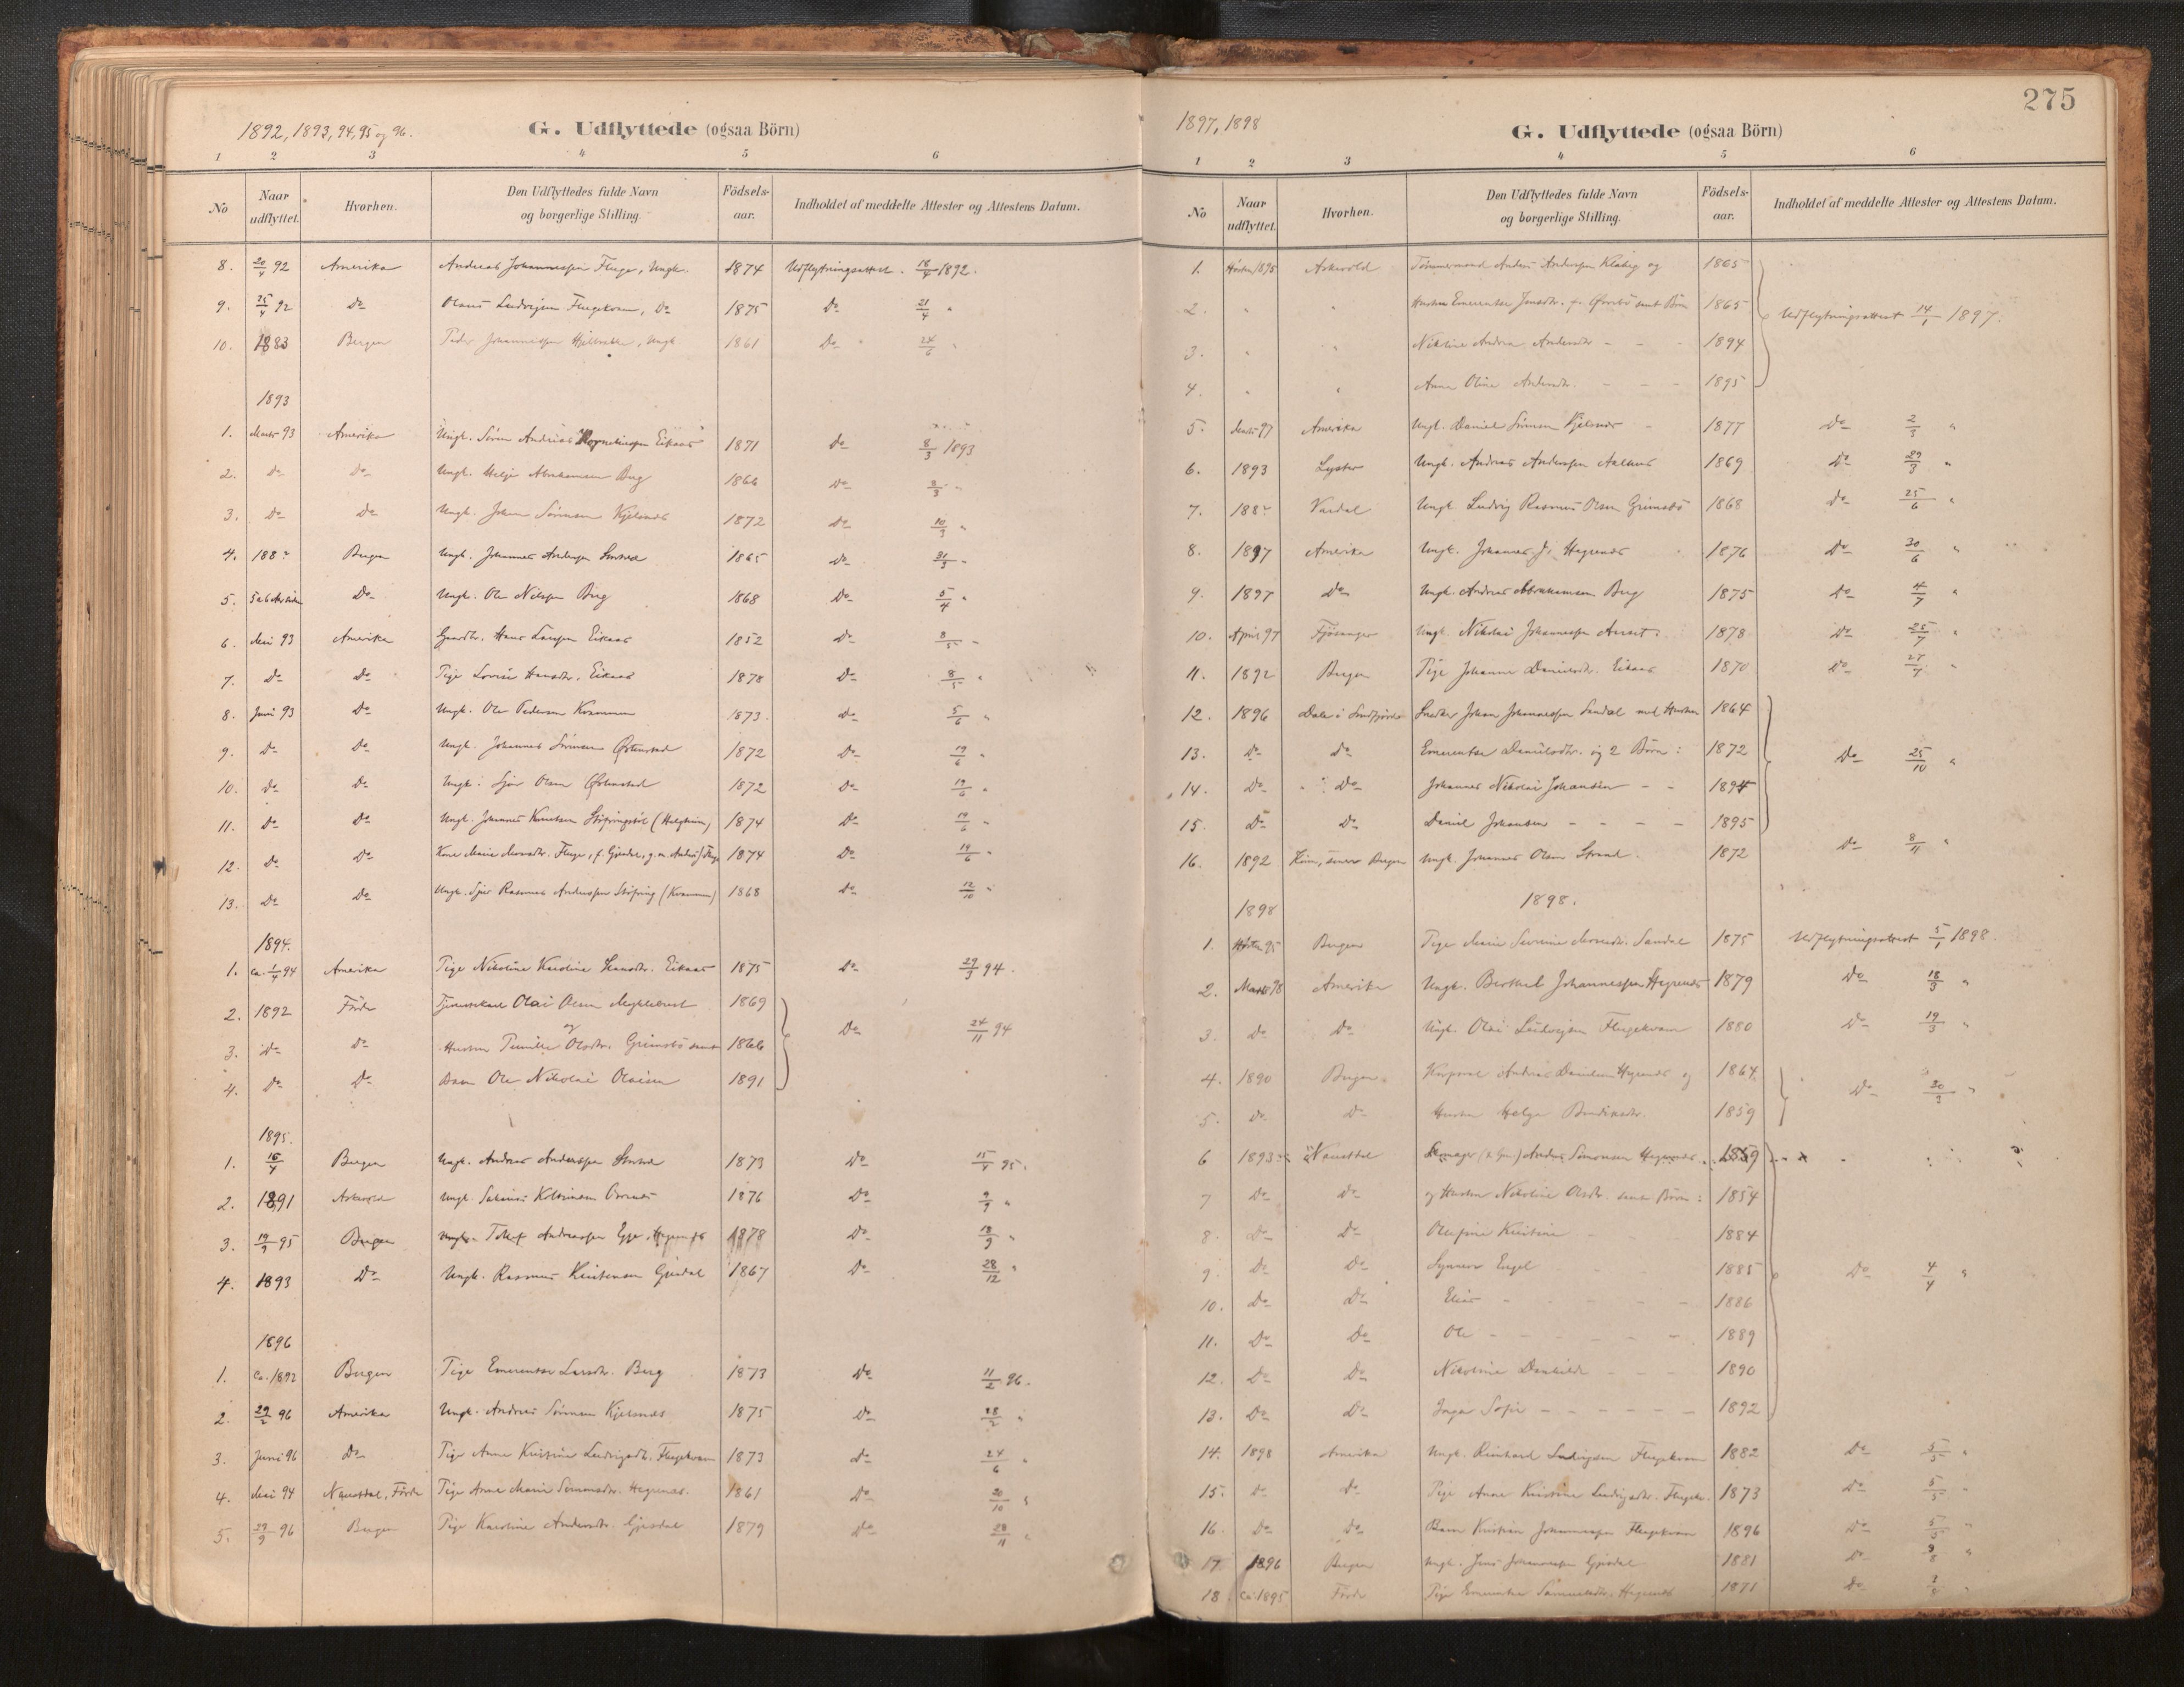 1892, 1893, 94, 95 og 96.
G. Udflyttede (ogsaa Börn)
1 2 3 4 5 6
No Naar udflyttet. Hvorhen. Den Udflyttedes fulde Navn og borgerlige Stilling. Födsels-aar. Indholdet af meddelte Attester og Attestens Datum.
8. 20/4 92 Amerika Andreas Johannessen Fluge, Ungk. 1874 Udflytningsattest. 18/4 1892.
9. 25/4 92 Do Olaus Ludvigsen Flugekvam, Do 1875 Do 21/4 "
10. 1883 Bergen Peder Johannessen, Ungk 1861 Do 24/6 "
1893
1. Marts 93 Amerika Ungk. Sören Andreas Eikaas 1871 Do 8/3 1893
2. Do Do Ungk. Helge Abrahamsen Berg 1866 Do 8/3 "
3. Do Do Ungk. Johan Sörensen Kjelsnes 1872 Do 10/3 "
4. 188? Bergen Ungk. Johannes Andersen 1865 Do 21/3 "
5. Do Ungk. Ole Nilssen Berg 1868 Do 5/4 "
6. Mai 93 Amerika Gaardbr. Hans Larssen Eikaas 1852 Do 8/5 "
7. Do Do Pige Lovise Hansdtr. Eikaas 1878 Do 8/5 "
8. Juni 93 Do Ungk. Ole Pedersen Kvammen 1873. Do 5/6 "
9. Do Do Ungk. Johannes Sörensen Östenstad 1872 Do 19/6 "
10. Do Do Ungk. Sjur Olsen Östenstad 1872 Do 19/6 "
11. Do Do Ungk. Johannes Knutsen (Helgheim) 1874 Do 19/6 "
12. Do Do Kone Marie Monsdtr. Fluge, f. Gjesdal, g.m. Andreas J. Fluge 1874 Do 19/6 "
13. Do Do Ungk. Sjur Rasmus Anderssen Stöfring (Kvammen) 1868 Do 12/10 "
1894.
1. ca. 1/4 94 Amerika Pige Nikoline Karoline Hansdtr. Eikaas 1875 Do 29/3 94.
2. 1892 Förde Tjenestekarl Olai Olsen Myklebust og 1869
3. Do Do Hustru Pernille Olsdtr. Grimsbö samt 1866 Do 24/11 94
4. Do Do Barn Ole Nikolai Olaisen 1891
1895.
1. 16/4 Bergen Ungk. Andreas Anderssen 1873 Do 15/4 95.
2. 1891 Askvold Ungk. 1876 Do 9/9 "
3. 19/9 95 Bergen Ungk. Andreassen 1878 Do 18/9 "
4. 1893 Do Ungk. Rasmus Kristensen Gjesdal 1867 Do 28/12 "
1896
1. ca. 1892 Bergen Pige Emerentse Larsdtr. Berg 1873 Do 11/2 96.
2. 29/2 96 Amerika Ungk. Andreas Sörensen Kjelsnes 1875 Do 28/2 "
3. Juni 96 Do Pige Anne Kristine Ludvigsdtr. Flugekvam 1873 Do 24/6 "
4. Mai 94 Naustdal, Förde Pige Anne Marie Simonsdtr. Hegrenes. 1861 Do 20/10 "
5. 29/9 96 Bergen Pige Karoline Andersdtr. Gjesdal 1879 Do 28/11 "
275
1897, 1898
G. Udflyttede (ogsaa Börn)
1 2 3 4 5 6
No Naar udflyttet. Hvorhen. Den Udflyttedes fulde Navn og borgerlige Stilling. Födsels-aar. Indholdet af meddelte Attester og Attestens Datum.
1. Hösten 1895 Askvold Tömmermand Anders Anderssen og 1865
2. " " Hustru Emerentse Jensdtr. f. samt Börn 1865 Udflytningsattest 14/1 1897.
3. " " Nikoline Andrea Andersdtr - - 1894
4. " " Anna Olina Andersdtr. - - - 1895
5. Marts 97 Amerika Ungk. Daniel Simonsen Kjelsnes - 1877 Do 2/3 "
6. 1893 Lyster Ungk. Andreas Anderssen Aalhus 1869 Do 29/3 "
7. 188? Vardal Ungk. Ludvig Rasmus Olsen Grimsbö 1868 Do 25/6 "
8. 1897 Amerika Ungk. Johannes J. Hegrenes 1876 Do 30/6 "
9. 1897 Do Ungk. Andreas Abrahamsen Berg 1875 Do 4/7 "
10. April 97 Fjösanger Ungk. Nikolai Johannessen 1878 Do 25/7 "
11. 1892 Bergen Pige Johanne Danielsdtr. Eikaas 1870 Do 27/7 "
12. 1896 Dale i Söndfjord Snedker Johan Johannessen Sandal med Hustru 1864
13. Do Do Emerentse Danielsdtr. og 2 Börn: 1872 Do 25/10 "
14. Do Do Johannes Nikolai Johansen - - 1894
15. Do Do Daniel Johansen - - - - 1895
16. 1892 Bergen Ungk. Johannes Olsen Strand. 1872 Do 8/11 "
1898 1898.
1. Hösten 95 Bergen Pige Marie Severine Monsdtr. Sandal 1875 Udflytningsattest 5/1 1898.
2. Marts 98 Amerika Ungk. Berthel Johannessen Hegrenes 1879 Do 18/3 "
3. Do Do Ungk. Olai Ludvigsen Flugekvam 1880 Do 19/3 "
4. 1890 Bergen Korporal Andreas Danielsen Hegrenes og 1864. Do 30/3 "
5. Do Do Hustru Helga Bendiksdtr. 1859
6 1893 Naustdal Anders Simonsen Hegrenes 1859
7 Do Do og Hustru Nikoline Olsdtr. samt Börn: 1854
8. Do Do Olefine Kristine - - 1884
9. Do Do Synneve Engel - - 1885 Do 4/4 "
10. Do Do Elias - - - - 1886
11. Do Do Ole - - - - - 1889
12. Do Do Nikoline Danhilde - - - 1890
13. Do Do Inga Sofie - - - - - 1892
14. 1898 Amerika Ungk. Reinhard Ludvigsen Flugekvam 1882 Do 5/5 "
15. Do Do Pige Anne Kristine Ludvigsdtr. Flugekv. 1873 Do 5/5 "
16. Do Do Barn Kristian Johannessen Flugekvam 1896 Do 5/5 "
17. 1896 Bergen Ungk. Jens Johannessen Gjesdal 1881 Do 9/8 "
18 Ca. 1895 Förde Pige Emerentse Samuelsdtr. Hegrenes 1871 Do